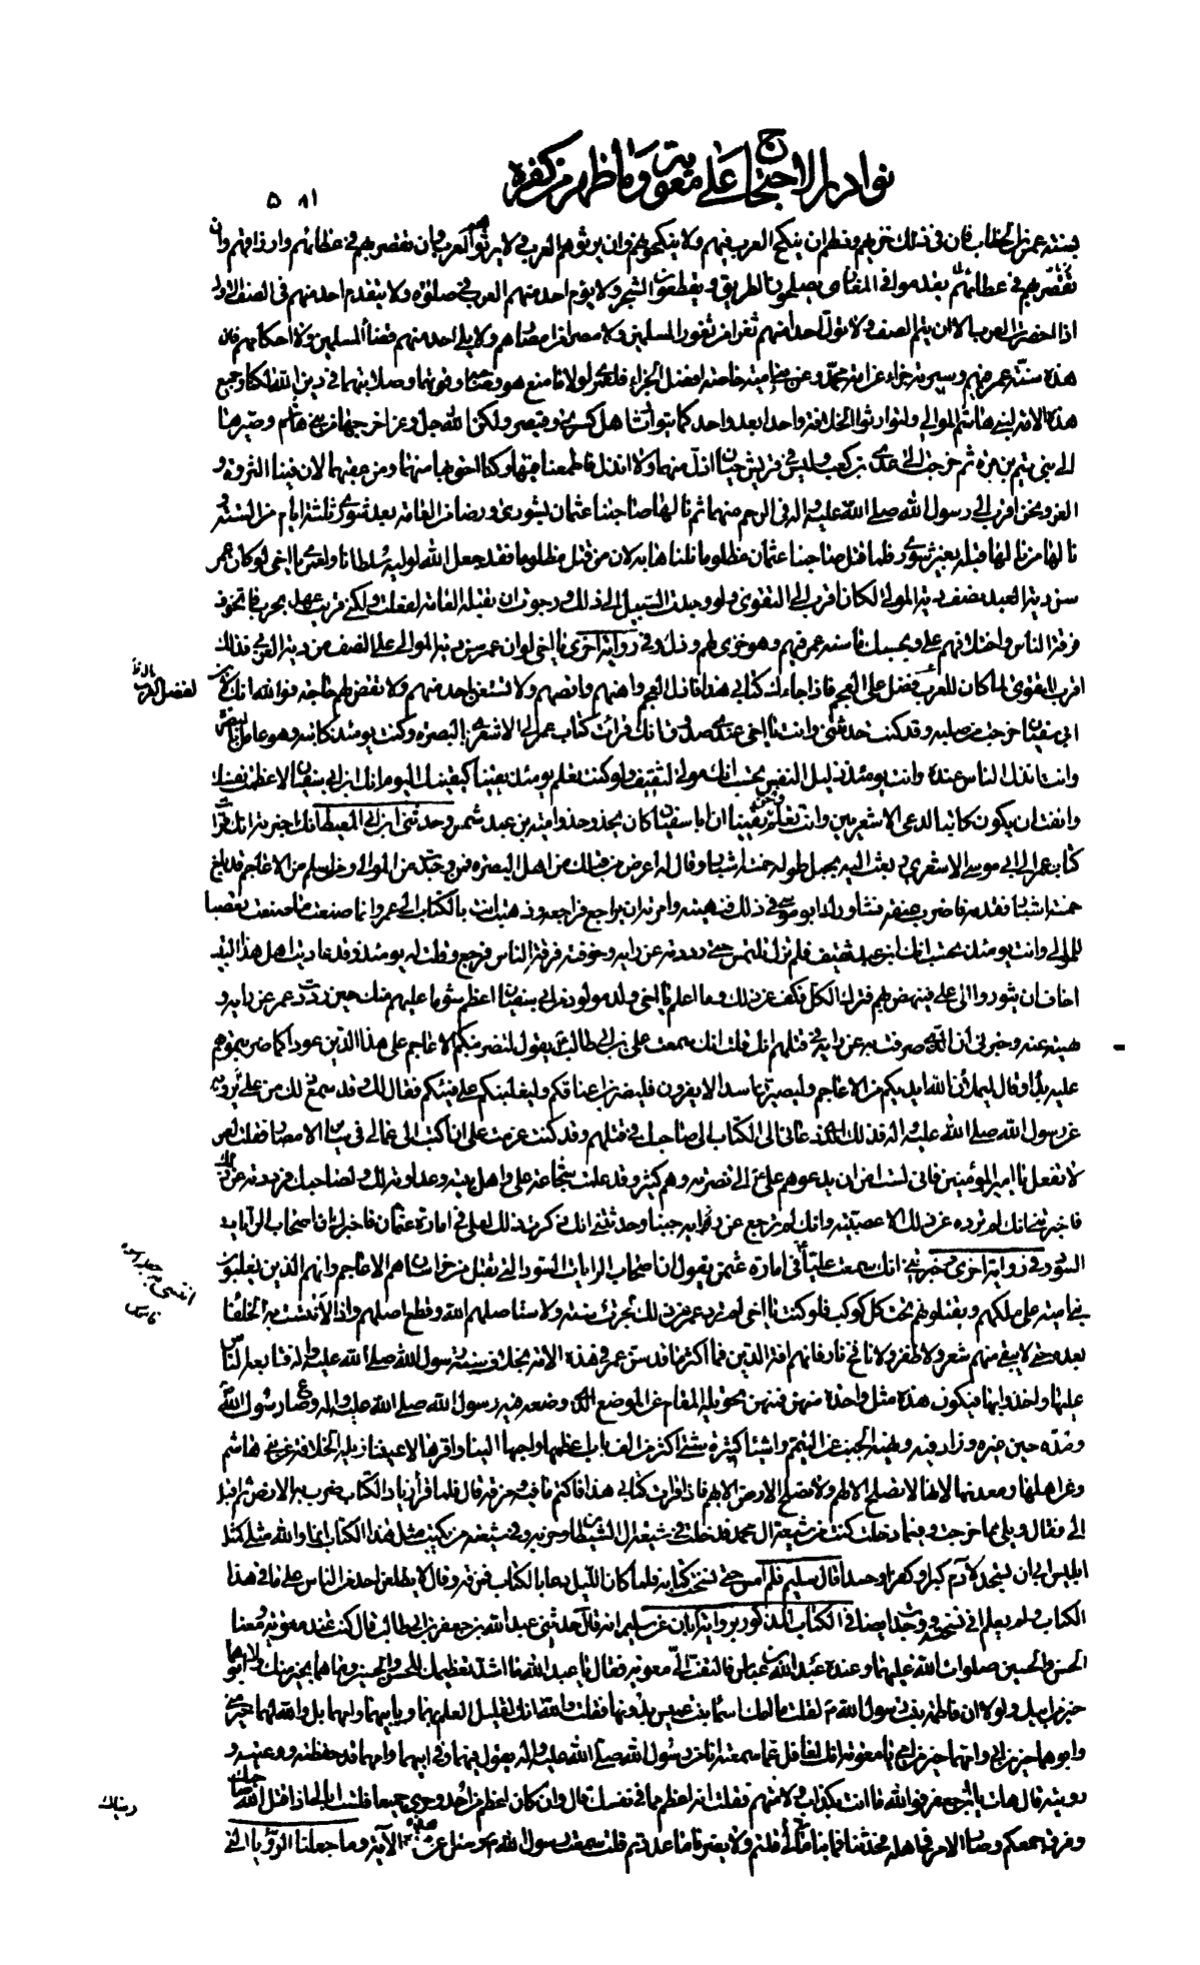 نوادر الاحتجاج على معوية وما ظهر من كفره
٥٨١
بسنة عمر بن الخطاب فان في ذلك خزيهم وذلهم ان ينكح العرب فيهم ولا ينكحوهم وان يرثوهم العرب ولا يرثوا العرب وان تقصر بهم في عطائهم وارزاقهم وان
يقدموا في المغازي يصلحون الطريق ويقطعون الشجر ولا يؤم احد منهم العرب في صلوة ولا يتقدم احد منهم في الصف الاول
اذا حضرت العرب الا ان يتم الصف ولا تول احدا منهم ثغرا من ثغور المسلمين ولا مصرا من امصارهم ولا يلي احد منهم قضاء المسلمين ولا احكامهم فان
هذه سنة عمر فيهم وسيرته جزاه عن امة محمد وعن بني امية خاصة افضل الجزاء فلعمري لولا ما صنع هو وصاحبه وقوتهما وصلابتهما في دين الله لكنا وجميع
هذه الامة لبني هاشم الموالي ولتوارثوا الخلافة واحدا بعد واحد كما يتوارث اهل كسرى وقيصر ولكن الله جل وعز اخرجها من بني هاشم وصيرها
الى بني تيم بن مرة ثم خرجت الى عدي بن كعب وليس في قريش حيان اذل منهما ولا انذل فاطمعنا فيها وكنا احق بها منهما ومن عقبهما لان فينا الثروة و
العز ونحن اقرب الى رسول الله صلى الله عليه واله في الرحم منهما ثم نالها صاحبنا عثمان بشورى ورضا من العامة بعد شورى ثلثة ايام من الستة و
نالها من نالها قبله بغير شورى فلما قتل صاحبنا عثمان مظلوما نلناها به لان من قتل مظلوما فقد جعل الله لوليه سلطانا ولعمري يا اخي لو كان عمر
سن دية العبد نصف دية المولى لكان اقرب الى التقوى ولو وجدت السبيل الى ذلك ورجوت ان تقبله العامة لفعلت ولكني قريب عهد بحرب فاتخوف
فرقة الناس واختلافهم علي وبحسبك ما سنه عمر فيهم وهو خزي لهم وذل وفي رواية اخرى يا اخي لو ان عمر سن دية الموالي على النصف من دية العربي فذلك
اقرب التقوى لما كان للعرب فضل على العجم فاذا جاءك كتابي هذا فاذل العجم واهنهم واقصهم ولا تستعن باحد منهم ولا تقض لهم حاجة فوالله انك لابن
ابي سفيان خرجت من صلبه وقد كنت حدثتني وانت يا اخي عندي صدوق انك قرات كتاب عمر الى الاشعري بالبصرة وكنت يومئذ كاتبه وهو عامل بالبصرة
وانت انذل الناس عنده وانت يومئذ ذليل النفس تحسب انك مولى لثقيف ولو كنت تعلم يومئذ يقينا كيقينك اليوم انك ابن ابي سفيان لاعظمت نفسك
وانفت ان تكون كاتبا لدعي الاشعريين وانت تعلم ونحن يقينا ان ابا سفيان كان يحذو حذو امية بن عبد شمس وحدثني ابن ابي المعيط انك اخبرته انك قرات
كتاب عمر الى ابي موسى الاشعري وبعث اليه بحبل طوله خمسة اشبار وقال له اعرض من قبلك من اهل البصرة فمن وجدته من الموالي ومن اسلم من الاعاجم قد بلغ
خمسة اشبار فقدمه فاضرب عنقه فشاورك ابو موسى في ذلك فنهيته وامرته ان يراجع فراجعه وذهبت انت بالكتاب الى عمر وانما صنعت ما صنعت تعصبا
للموالي وانت يومئذ تحسب انك ابن عبد ثقيف فلم تزل تلتمس حتى رددته عن رايه وخوفته فرقة الناس فرجع وقلت له يومئذ وقد عاديت اهل هذا البيت
اخاف ان يثوروا الى علي فينهض بهم فيزيل ملكك فكف عن ذلك وما اعلم يا اخي ولد مولود من ابي سفيان اعظم شؤما عليهم منك حين رددت عمر عن رايه و
نهيته عنه وخبرني ان الذي صرفت به عن رايه في قتلهم انك قلت انك سمعت علي بن ابي طالب يقول لتضربنكم الاعاجم على هذا الدين عودا كما ضربتموهم
عليه بدءا وقال ليملأن الله ايديكم من الاعاجم وليصيرن اسدا لا يفرون فليضربن اعناقكم وليغلبنكم على فيئكم فقال لك وقد سمع ذلك من علي يرويه
عن رسول الله صلى الله عليه واله فذلك الذي دعاني الى الكتاب الى صاحبك في قتلهم وقد كنت عزمت على ان اكتب الى عمالي في سائر الامصار فقلت لعمر
لا تفعل يا امير المؤمنين فاني لست امن ان يدعوهم علي الى نصرته وهم كثير وقد علمت شجاعة علي واهل بيته وعداوته لك ولصاحبك فرددته عن ذلك
فاخبرتني انك لم ترده عن ذلك الا عصبية وانك لم ترجع عن رايه جبنا وحدثتني انك ذكرت ذلك لعلي في امارة عثمان فاخبرك ان اصحاب الرايات
السود وفي رواية اخرى وخبرتني انك سمعت عليا في امارة عثمن يقول ان اصحاب الرايات السود التي تقبل من خراسان هم الاعاجم وانهم الذين يغلبون
بني امية على ملكهم ويقتلونهم تحت كل كوكب فلو كنت يا اخي لم ترد عمر عن ذلك لجرت سنة ولاستاصلهم الله وقطع اصلهم واذا لانتست به الخلفاء
بعده حتى لا يبقى منهم شعر ولا ظفر ولا نافخ نار فانهم افة الدين فما اكثر ما قد سن عمر في هذه الامة بخلاف سنة رسول الله صلى الله عليه واله فتابعه الناس
عليها واخذوا بها فتكون هذه مثل واحدة منهن فمنهن تحويله المقام عن الموضع الذي وضعه فيه رسول الله صلى الله عليه واله وصاع رسول الله
ومده حين غيره وزاد فيه ونهيه الجنب عن التيمم واشياء كثيرة شتى اكثر من الف باب اعظمها واحبها الينا واقرها لاعيننا زيله الخلافة عن بني هاشم
وعن اهلها ومعدنها لانها لا تصلح الا لهم ولا تصلح الارض الا بهم فاذا قرات كتابي هذا فاكتم ما فيه ومزقه قال فلما قرا زياد الكتاب ضرب به الارض ثم اقبل
الي فقال ويلي مما خرجت وفيما دخلت كنت من شيعة ال محمد فدخلت في شيعة ال الشيطان وحزبه وفي شيعة من يكتب مثل هذا الكتاب انما والله مثلي كمثل
ابليس ابى ان يسجد لادم كبرا وكفرا وحسدا قال سليم فلم امس حتى نسخت كتابه فلما كان الليل دعا بالكتاب فمزقه وقال لا يطلعن احد من الناس على ما في هذا
الكتاب ولم يعلم اني نسخته ووجدت ايضا في الكتاب المذكور برواية ابان عن سليم انه قال حدثني عبد الله بن جعفر بن ابي طالب قال كنت عند معوية ومعنا
الحسن والحسين صلوات الله عليهما وعنده عبد الله بن عباس فالتفت الي معوية فقال يا عبد الله ما اشد تعظيمك للحسن والحسين وما هما بخير منك ولا ابوهما
خير من ابيك ولولا ان فاطمة بنت رسول الله ص لقلت ما امك اسماء بنت عميس بدونها فقلت والله انك لقليل العلم بهما وبابيهما وامهما بل والله لهما خير مني
وابوهما خير من ابي وامهما خير من امي يا معوية انك لغافل عما سمعته انا من رسول الله صلى الله عليه واله يقول فيهما وفي ابيهما وامهما قد حفظته ووعيته و
رويته قال هات يابن جعفر فوالله ما انت بكذاب ولا متهم فقلت انه اعظم مما في نفسك قال وان كان اعظم من احد وحرى جميعا فلست ابالي اذا قتل الله صاحبك
وفرق جمعكم وصار الامر في اهله فحدثنا فما نبالي ما قلتم ولا يضرنا ما عددتم قلت سمعت رسول الله ص وسئل عن هذه الاية وما جعلنا الرؤيا التي